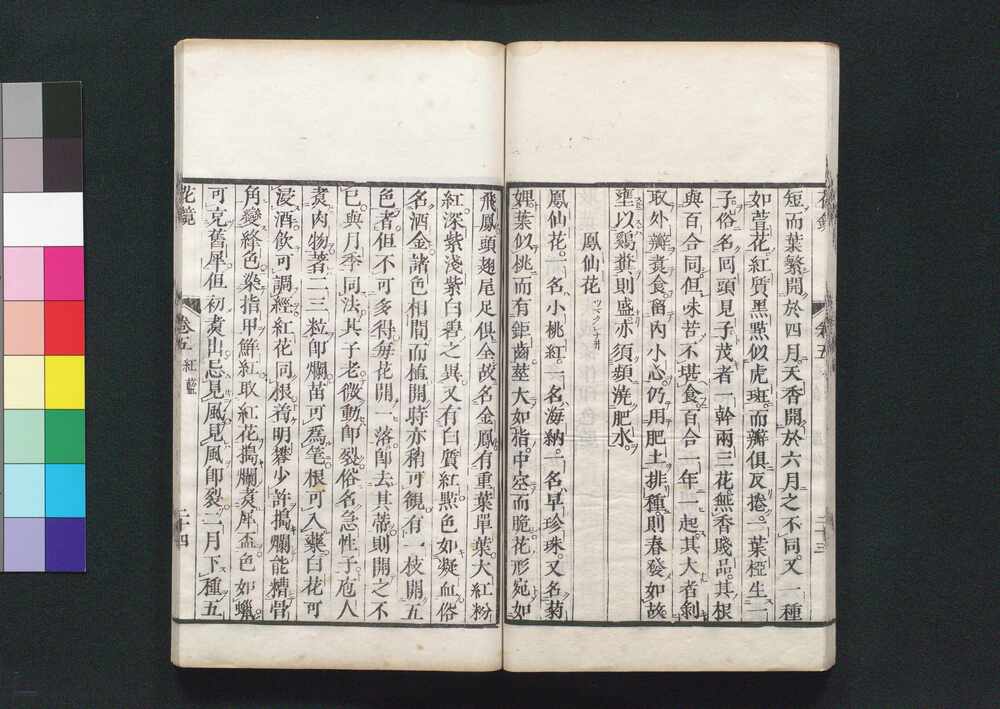 短而葉繁開於四月天香開於六月之不同又一種
如萱花紅質黑點似虎斑而瓣俱反捲一葉椏生一
子俗名回頭見子茂者一幹兩三花無香賤品其根
與百合同但味苦不堪食百合一年一起其大者剝
取外瓣煑食畱內小心仍用肥土排種則春發如故
壅以鷄糞則盛亦須頻澆肥水
鳳仙花
鳳仙花一名小桃紅一名海納一名旱珍珠又名菊
婢葉似桃而有鉅齒莖大如指中空而脆花形宛如
卷五
二十三
飛鳳頭翅尾足俱全故名金鳳有重葉單葉大紅粉
紅深紫淺紫白碧之異又有白質紅點色如凝血俗
名洒金諸色相間而植開時亦稍可觀有一枝開五
色者但不可多得每花開一落卽去其蒂則開之不
已與月季同法其子老微動卽裂俗名急性子庖人
煑肉物著二三粒卽爛苗可爲筀根可入藥白花可
浸酒飲可調經紅花同根着明礬少許搗爛能糟骨
角變絳色染指甲鮮紅取紅花搗爛煑犀盃色如蠟
可克舊犀但初煑出忌見風見風卽裂二月下種五
花鏡
卷五
紅藍
二十四